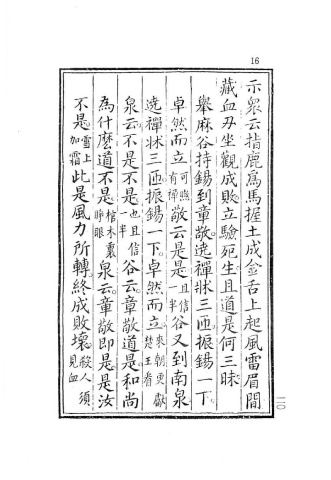 16
示眾云指鹿為馬握土成金舌上起風雷眉間
藏血刃坐觀成敗立驗死生且道是何三昧
舉麻谷持錫到章敬遶禪牀三匝振錫一下
卓然而立可煞有禪敬云是是且信一半谷又到南泉
遶禪牀三匝振錫一下卓然而立來朝更獻楚王看
泉云不是不是也且信一半谷云章敬道是和尚
為什麼道不是棺木裏瞠眼泉云章敬即是是汝
不是雪上加霜此是風力所轉終成敗壞殺人須見血